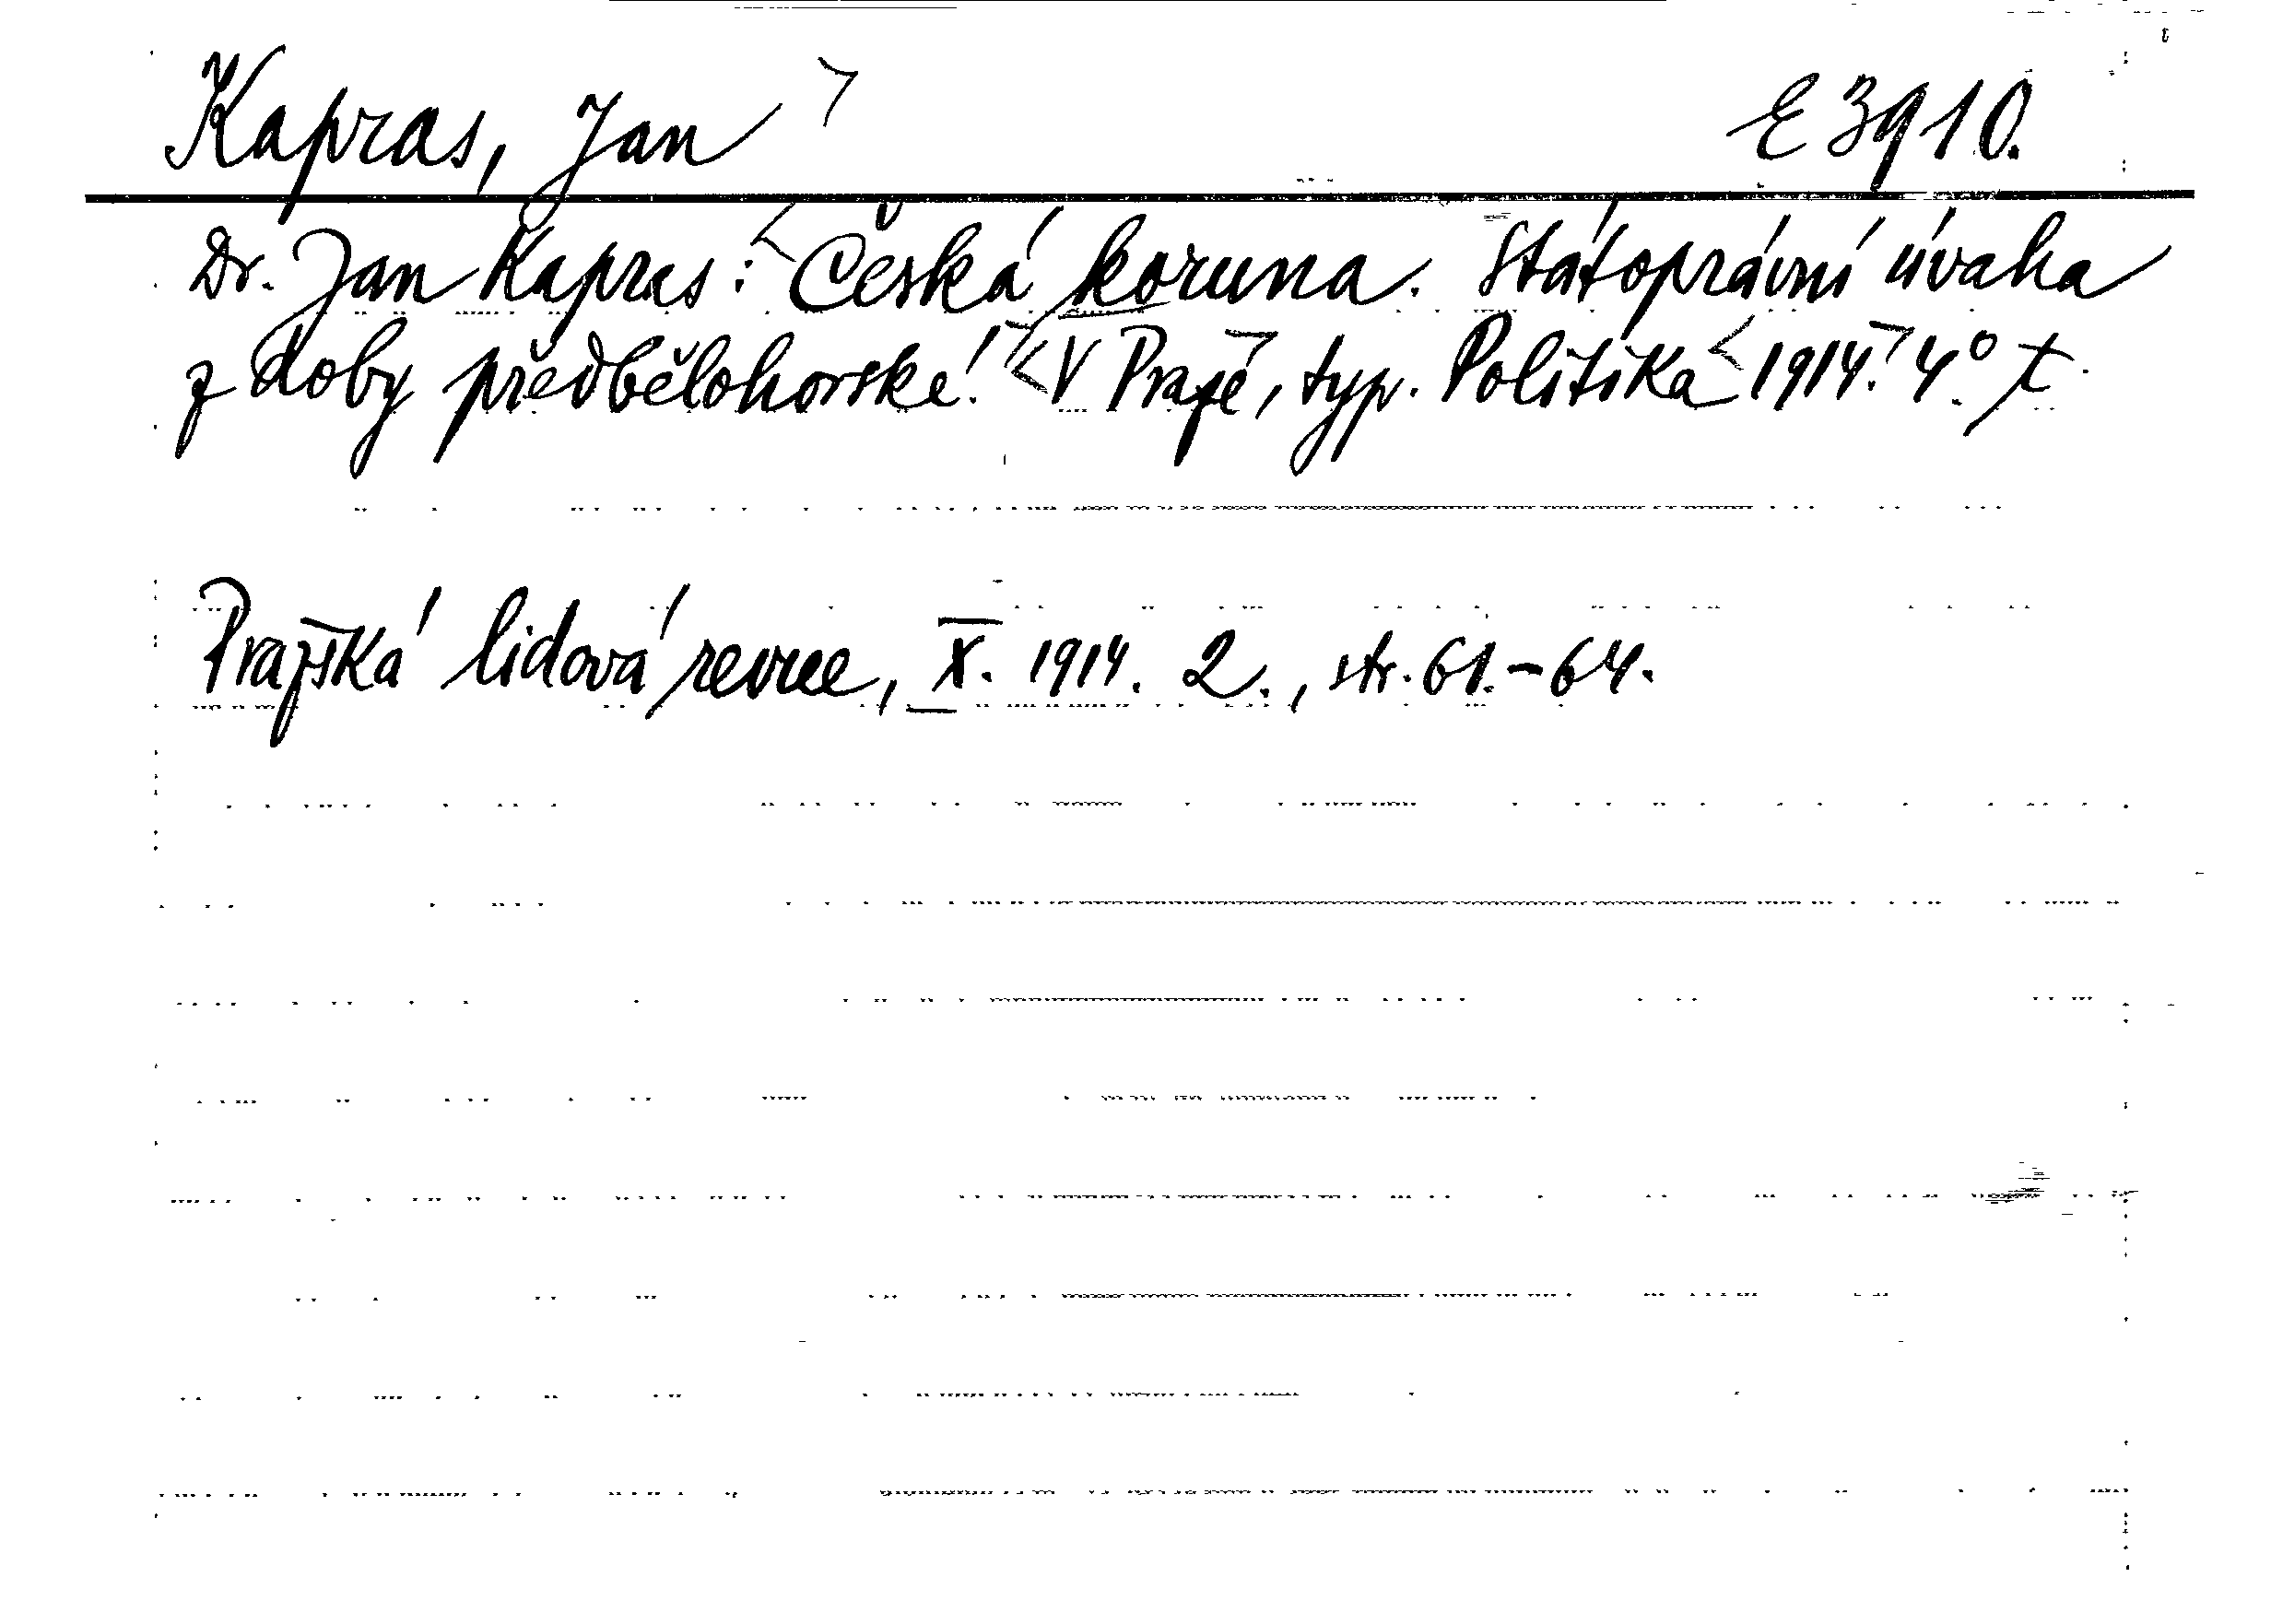 Kapras, Jan E 3910.
Dr. Jan Kapras: Česká koruna. Státoprávní úvaha
z doby předbělohorské. V Praze, typ. Politika 1914. 4°
Pražská lidová revue, X. 1914. 2., str. 61.-64.